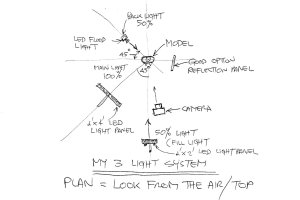 BACK LIGHT
50%
LED FLOOD
LIGHT
MODEL
45°
45°
GOOD OPTION
REFLECTION PANEL
MAIN LIGHT
100%
CAMERA
4'x4' LED
LIGHT PANEL
50% LIGHT
(FILL LIGHT
4'x2' LED LIGHT PANEL
MY 3 LIGHT SYSTEM
PLAN = LOOK FROM THE AIR/TOP